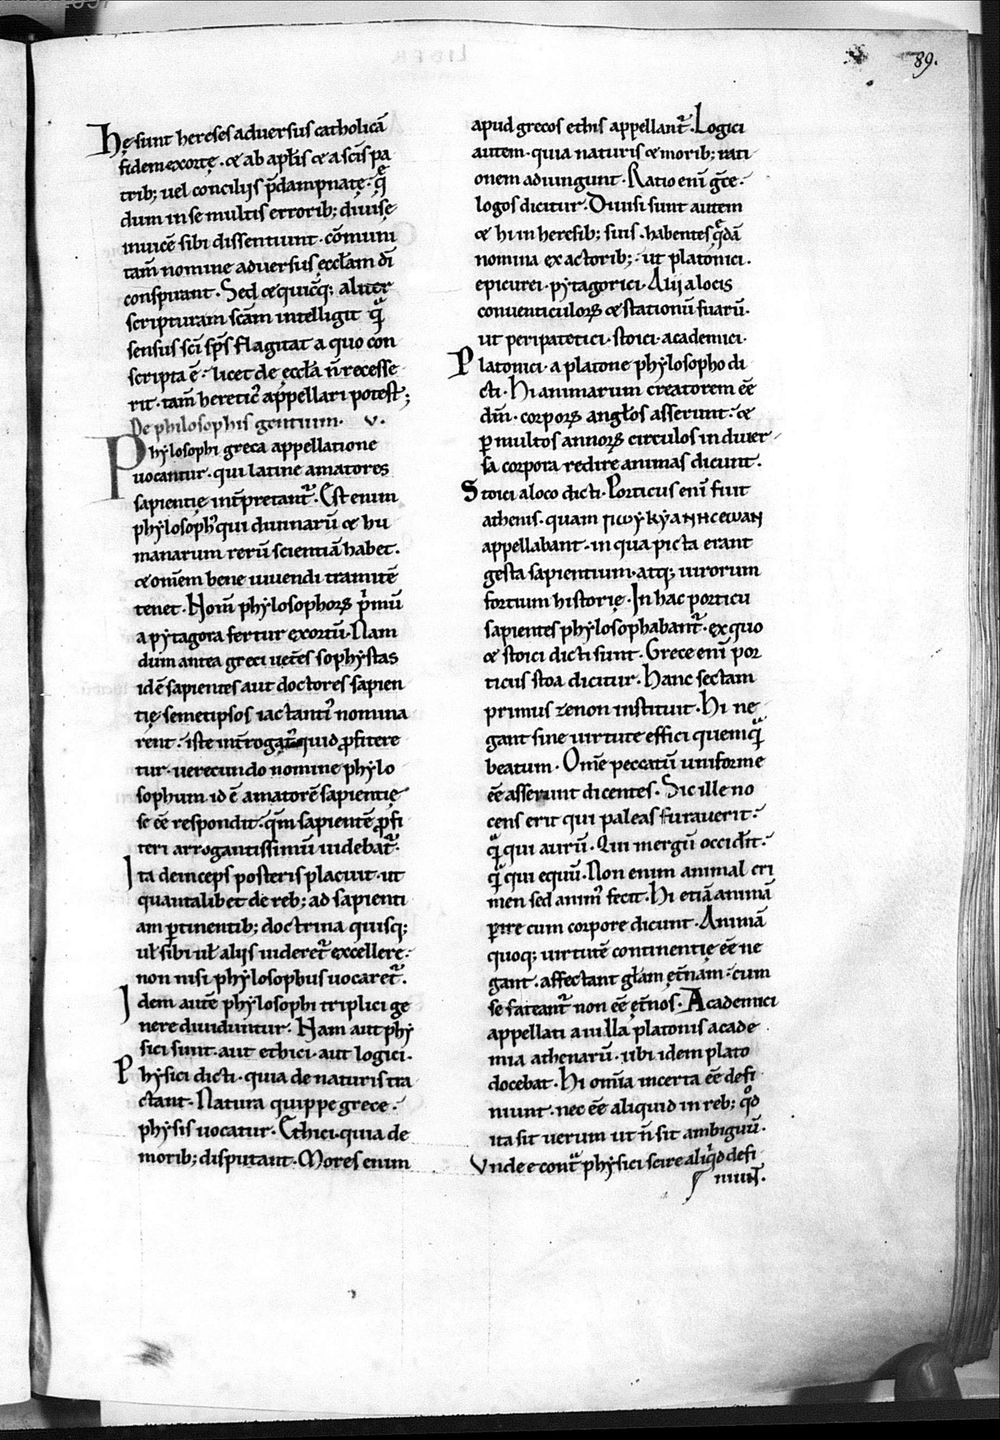 89.
Hę sunt hereses adversus catholicā
fidem exortę. & ab aplīs & a scīs pa
trib; uel concilijs p̄dampnatę. quę
dum in se multis errorib; diuisę
inuicē sibi dissentiunt. cōmuni
tam̄ nomine adversus ęcclam dī
conspirant. Sed & quicūq; aliter
scripturam scām intelligit quā
sensus scī sp̄s flagitat a quo con
scripta ē. licet de ęccla n̄ recesse
rit. tam̄ hereticꝰ appellari potest;
De philosophis gentium. v.
Phylosophi greca appellatione
uocantur. qui latine amatores
sapientię int̄pretant᷑. Est enim
phylosophꝰ qui diuinarū & hu
manarum rerū scientiā habet.
& om̄em bene uiuendi tramitē
tenet. Nom̄ phylosophoꝝ p̄mū
a pytagora fertur exortū. Nam
dum antea greci uet̄es sophystas
id ē sapientes aut doctores sapien
tię semetipsos iactantiꝰ nomina
rent. iste int̄rogatꝰ quid ꝓfitere
tur. uerecundo nomine phylo
sophum id ē amatorē sapientię
se ēē respondit. qm̄ sapientē ꝓfi
teri arrogantissimū uidebat᷑.
Ita deinceps posteris placuit. ut
quantalibet de reb; ad sapienti
am ꝑtinentib; doctrina quisq;
ul̄ sibi ul̄ alijs uideret᷑ excellere.
non nisi phylosophus uocaret᷑.
Idem autē phylosophi triplici ge
nere diuiduntur. Nam aut phy
sici sunt. aut ethici. aut logici.
Physici dicti. quia de naturis tra
ctant. Natura quippe grece.
physis uocatur. Ethici. quia de
morib; disputant. Mores enim
apud grecos ethis appellant᷑. Logici
autem. quia naturis & morib; rati
onem adiungunt. Ratio enī gr̄ce.
logos dicitur. Diuisi sunt autem
& hi in heresib; suis. habentes quędā
nomina ex actorib;. ut platonici.
epicurei. pytagorici. Alij a locis
conuenticuloꝝ & stationū suarū.
ut peripatetici. stoici. academici.
Platonici. a platone phylosopho di
cti. Hi animarum creatorem ēē
dm̄. corpoꝝ angl̄os asserunt. &
ꝑ multos annoꝝ circulos in diuer
sa corpora redire animas dicunt.
Stoici a loco dicti. Porticus enī fuit
athenis. quam ΠѠΥΚΥΑΝΗCΕѠΑΝ
appellabant. in qua picta erant
gesta sapientium. atq; uirorum
fortium historię. In hac porticu
sapientes phylosophabant᷑. ex quo
& stoici dicti sunt. Grece enī por
ticus stoa dicitur. Hanc sectam
primus zenon instituit. Hi ne
gant sine uirtute effici quemquā
beatum. Om̄e peccatū uniforme
ēē asserunt dicentes. Sic ille no
cens erit qui paleas furauerit.
quā qui aurū. Qui mergū occidit.
quā qui equū. Non enim animal cri
men sed animꝰ fecit. Hi etiā animā
ꝑire cum corpore dicunt. Animā
quoq; uirtutē continentię ēē ne
gant. affectant gl̄am et̄nam. cum
se fateant᷑ non ēē et̄nos. Academici
appellati a uilla platonis acade
mia athenarū. ubi idem plato
docebat. Hi om̄ia incerta ēē defi
niunt. nec ēē aliquid in reb; quod
ita sit uerum ut n̄ sit ambiguū.
Vnde e contra physici scire aliquid defi
niunt.